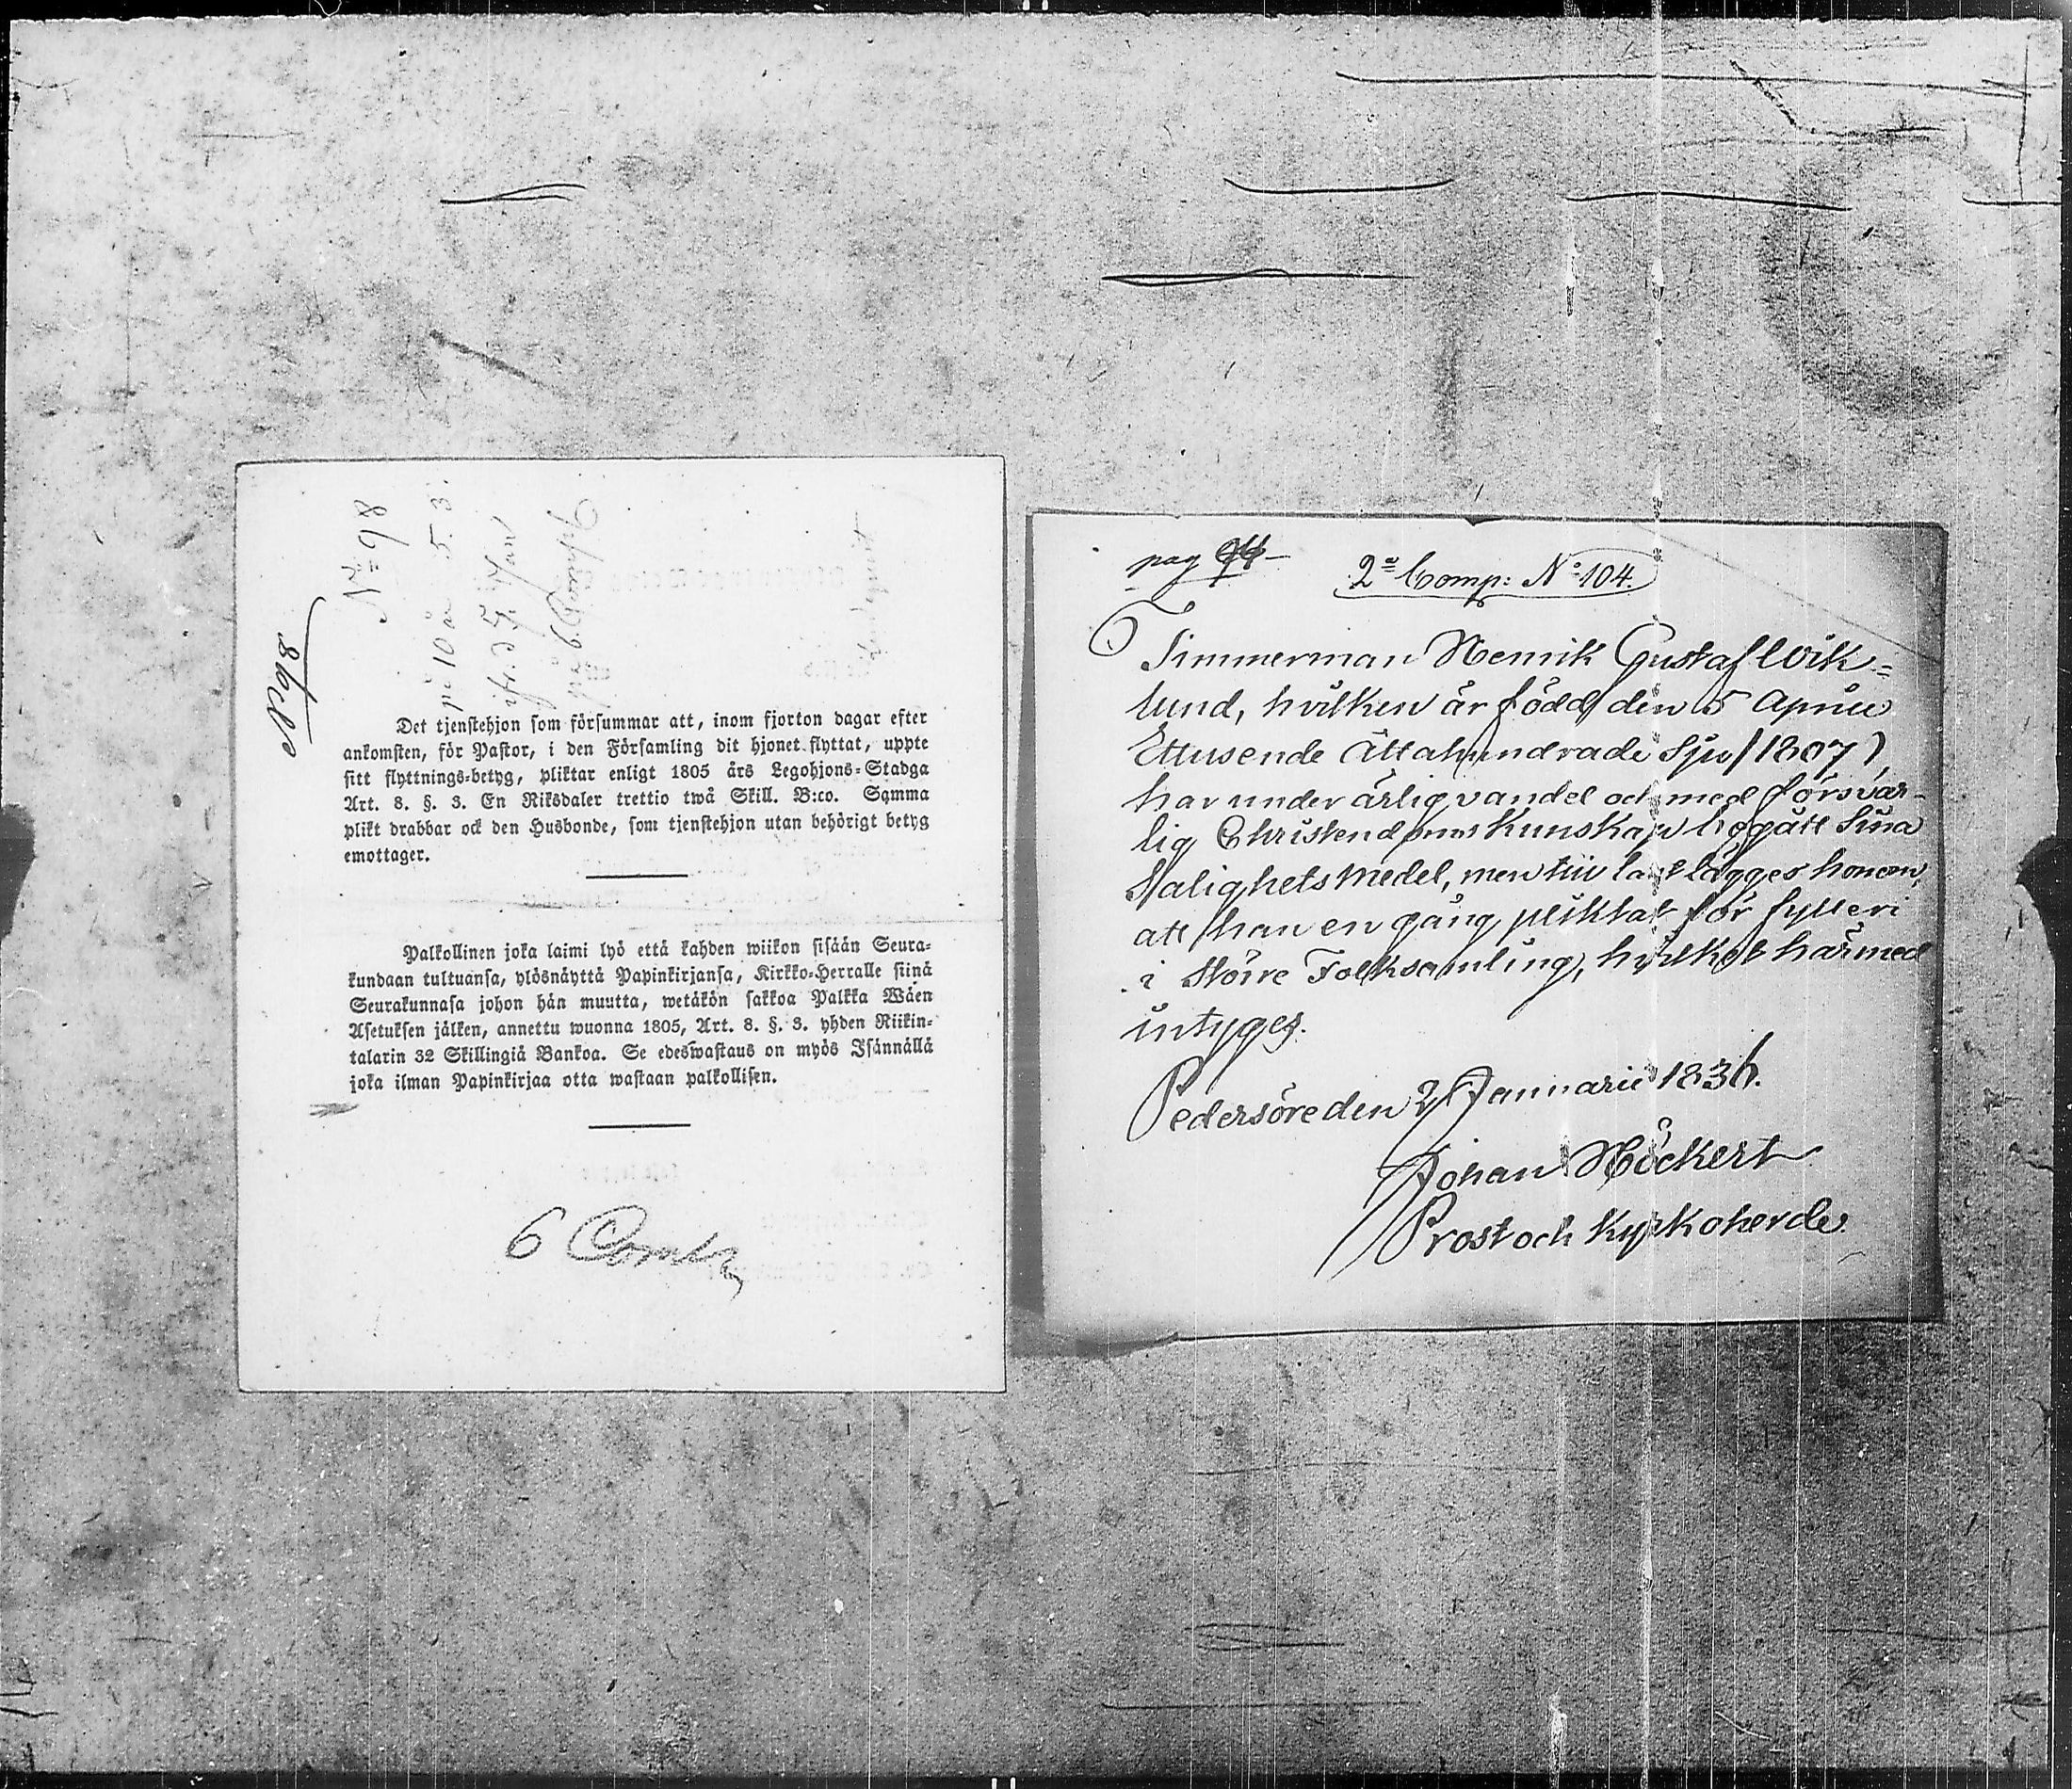 No 98
på 10 år 5. 3.
6 Comp
Det tjenstehjon som försummar att, inom fjorton dagar efter
ankomsten, för Pastor, i den Församling dit hjonet flyttat, uppte
sitt flyttnings-betyg, pliktar enligt 1805 års Legohjons-Stadga
Art. 8. §. 3. En Riksdaler trettio twå Skill. B:co. Samma
plikt drabbar ock den Husbonde, som tjenstehjon utan behörigt betyg
emottager.
Palkollinen joka laimi lyö että kahden wiikon sisään Seura-
kundaan tultuansa, ylösnäyttä Papinkirjansa, Kirkko-Herralle siinä
Seurakunnasa johon hän muutta, wetäkön sakkoa Palkka Wäen
Asetuksen jälken, annettu wuonna 1805, Art. 8. §. 3. yhden Riikin-
talarin 32 Skillingiä Bankoa. Se edeswastaus on myös Isännällä
joka ilman Papinkirjaa otta wastaan palkollisen.
6 Comp
pag
2a Comp: No 104.
Timmerman Henrik Gustaf Wik=
lund, hvilken är född den 5 April
Ettusende Åttahundrade Sju (1807)
har under ärlig vandel och med försvar-
lig Christendoms Kunskap begått Sina
Salighets Medel, men till last lägges honom,
att han en gång pliktat för fylleri
i större Folksamling, hvilket härmed
intyges.
Pedersöre den 2 Januarii 1836.
Johan Höckert
Prost och Kyrkoherde.